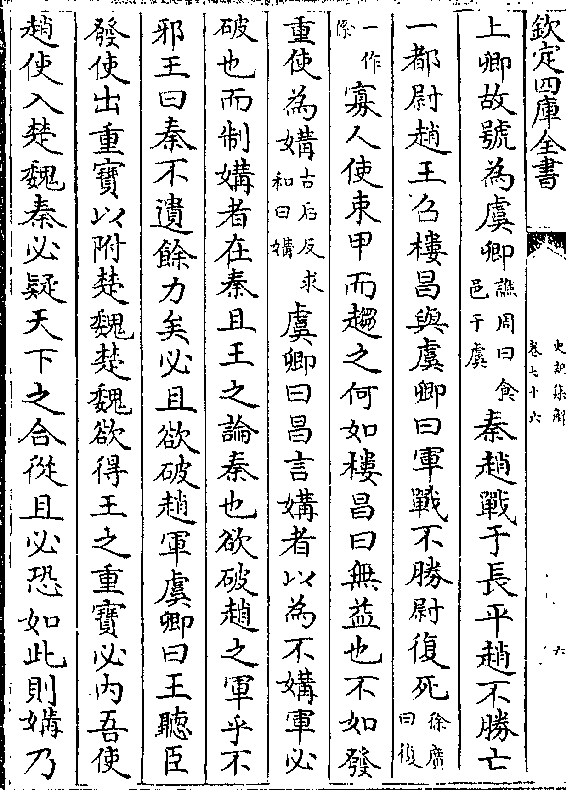 欽定四庫全書
史記集解
卷七十六
六
上卿故號為虞卿譙周曰食邑于虞秦趙戰于長平趙不勝亡
一都尉趙王召樓昌與虞卿曰軍戰不勝尉復死徐廣曰復
一作係寡人使束甲而趨之何如樓昌曰無益也不如發
重使為媾古后反求和曰媾虞卿曰昌言媾者以為不媾軍必
破也而制媾者在秦且王之論秦也欲破趙之軍乎不
邪王曰秦不遺餘力矣必且欲破趙軍虞卿曰王聽臣
發使出重寶以附楚魏楚魏欲得王之重寶必内吾使
趙使入楚魏秦必疑天下之合從且必恐如此則媾乃